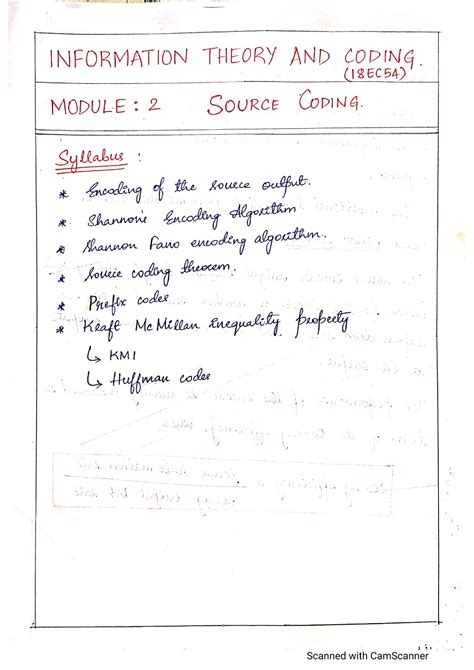 INFORMATION THEORY AND CODING.
(18EC54)
MODULE : 2 SOURCE CODING.
Syllabus :
* Encoding of the source output.
* Shannon's Encoding Algorithm
* Shannon Fano encoding algorithm.
* Source coding theorem.
* Prefix codes
* Kraft McMillan inequality property
↳ KMI
↳ Huffman codes
Scanned with CamScanner